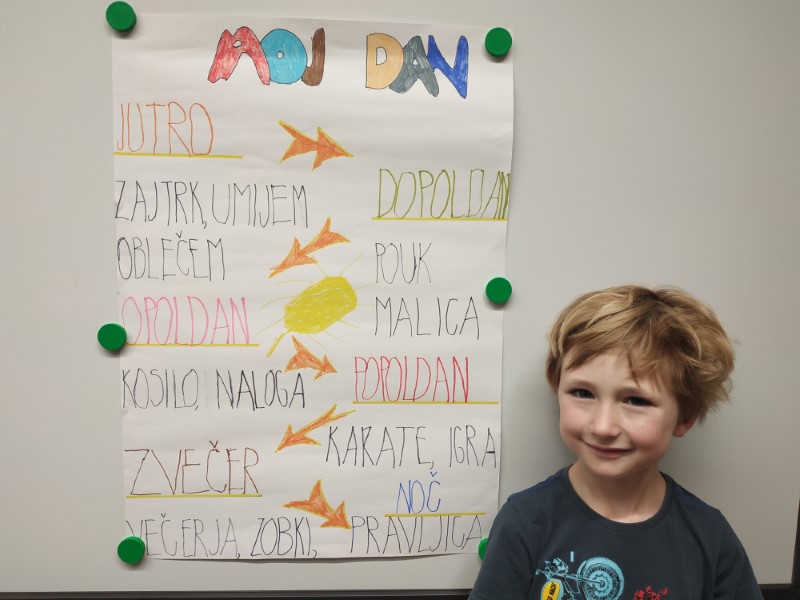 MOJ DAN
JUTRO
ZAJTRK, UMIJEM
OBLEČEM
DOPOLDAN
POUK
MALICA
OPOLDAN
KOSILO, NALOGA
POPOLDAN
KARATE, IGRA
ZVEČER
VEČERJA, ZOBKI,
NOČ
PRAVLJICA